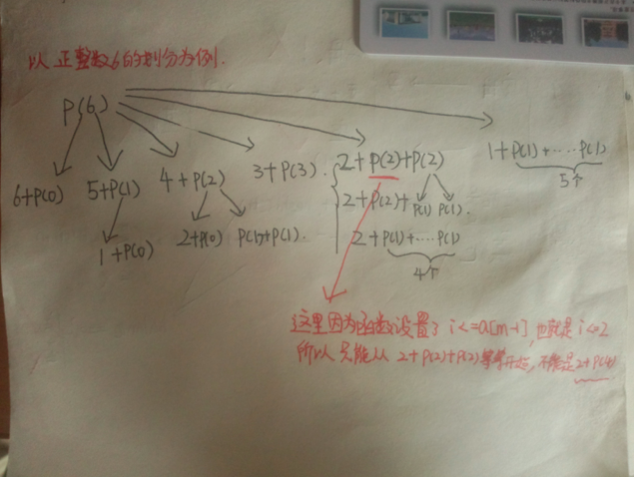 以正整数6的划分为例.
P(6)
6+P(0) 5+P(1) 4+P(2) 3+P(3). 2+P(2)+P(2) 1+P(1)+....P(1)
5个
1+P(0) 2+P(0) P(1)+P(1). 2+P(2)+P(1) P(1).
2+P(1)+....P(1)
4个
这里因为函数设置了 i<=a[m-1],也就是 i<=2
所以只能从 2+P(2)+P(2)等等开始,不能是2+P(4)